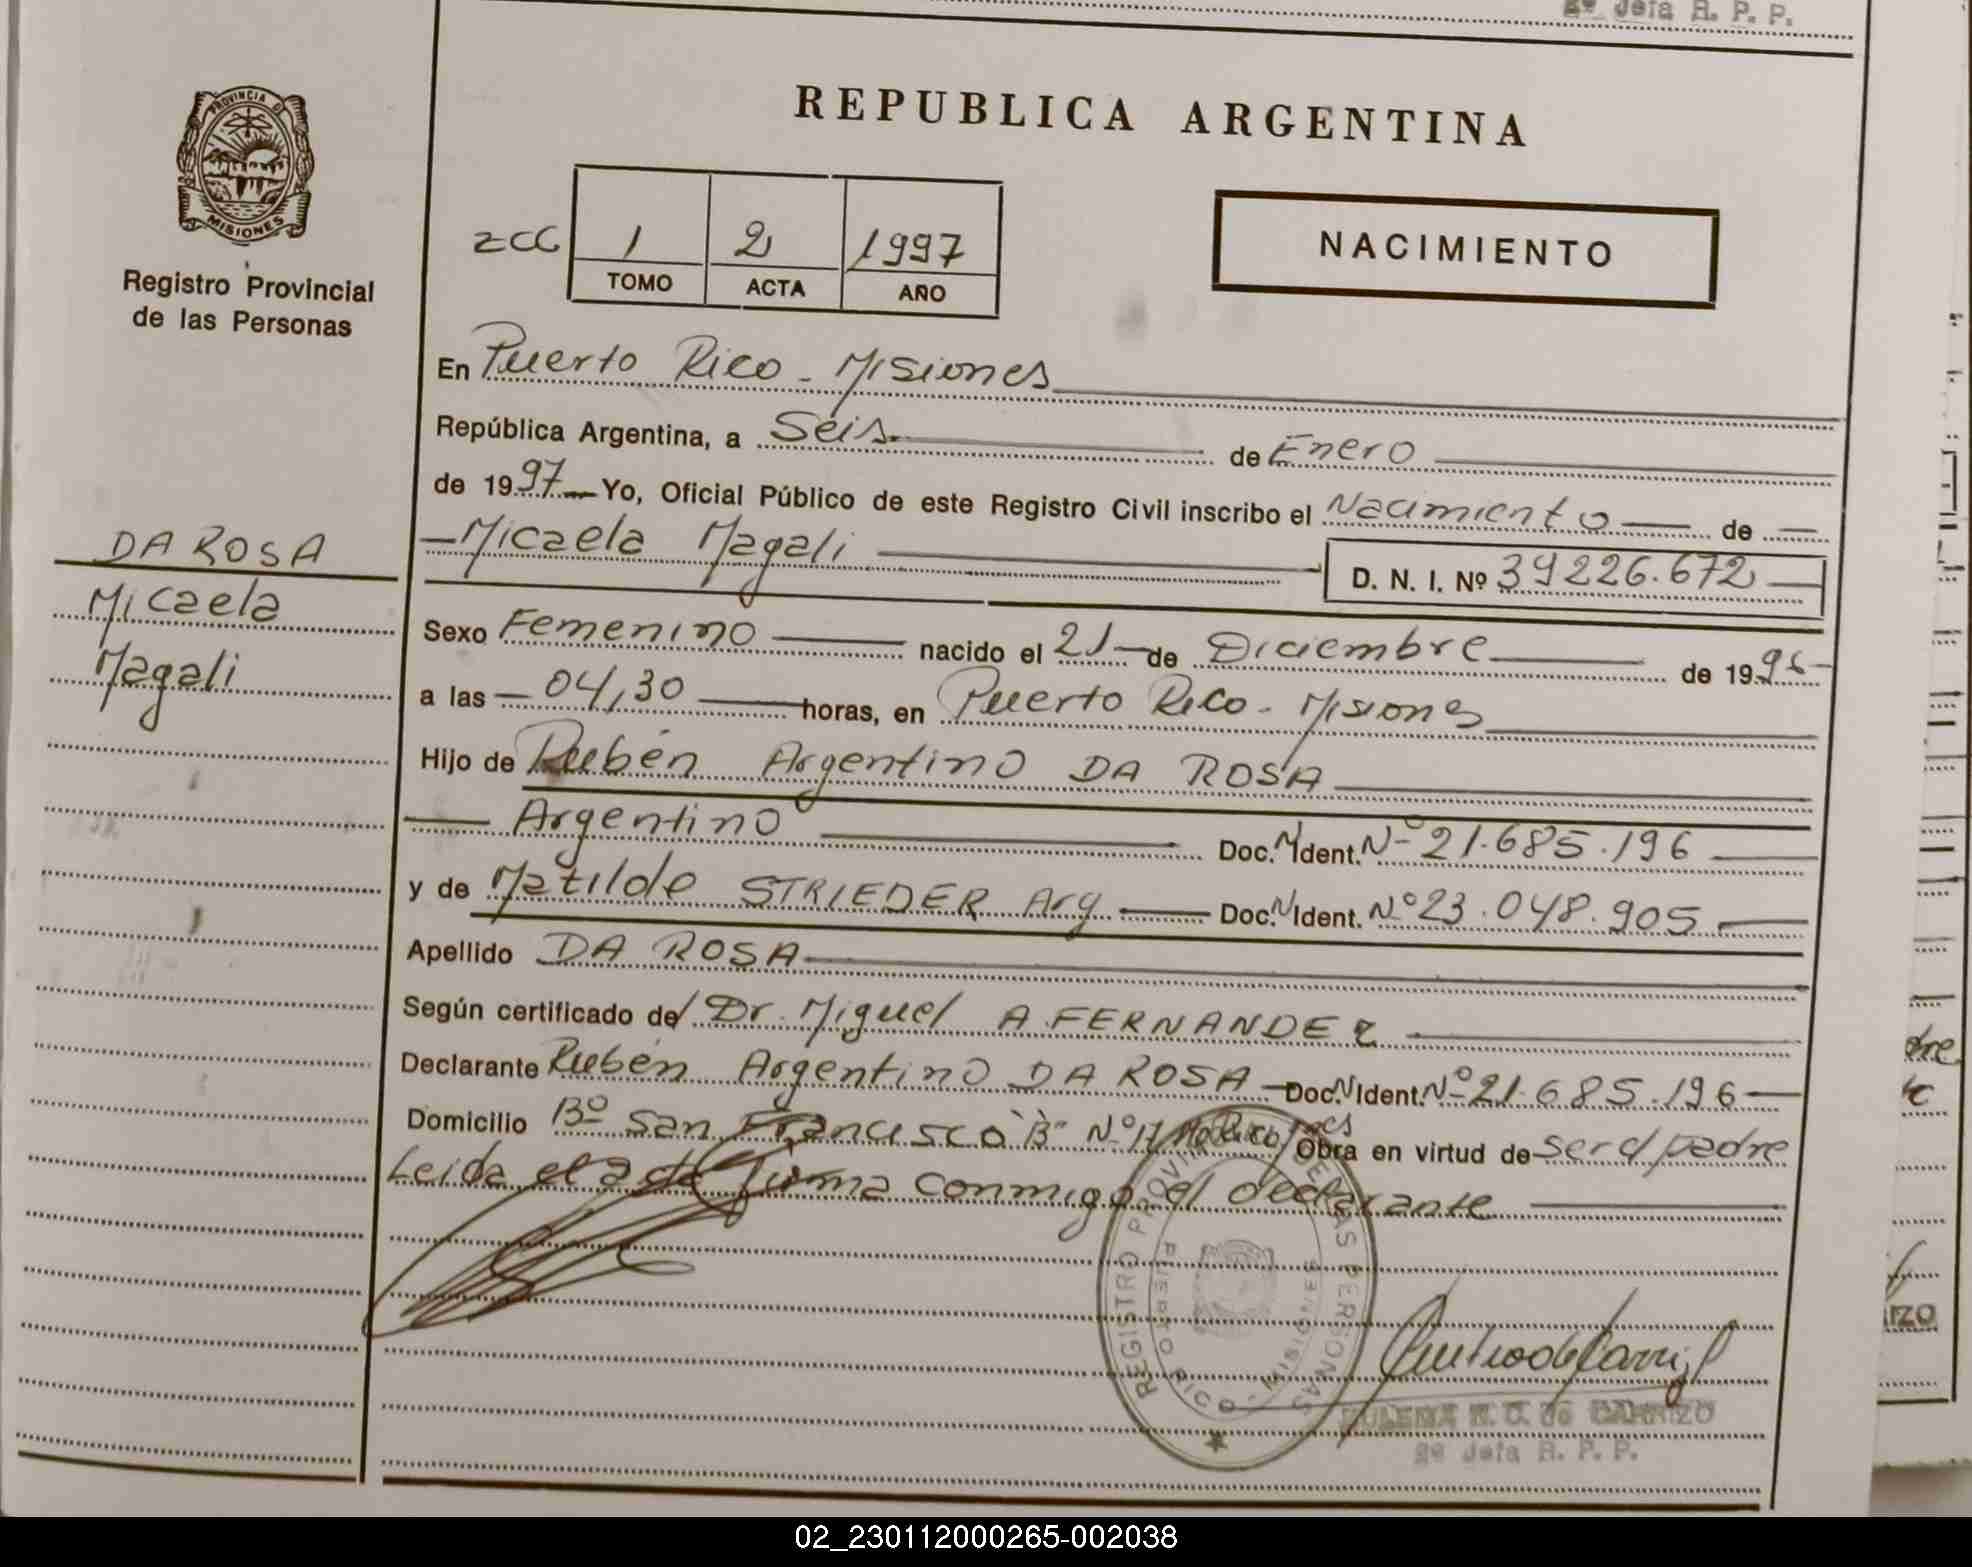 2º Jefa R. P. P.
REPUBLICA ARGENTINA
PROVINCIA DE
MISIONES
Registro Provincial
de las Personas
1 2 1997
TOMO ACTA AÑO
NACIMIENTO
En Puerto Rico - Misiones
República Argentina, a Seis de Enero
de 1997 Yo, Oficial Público de este Registro Civil inscribo el Nacimiento de
Micaela Magali D. N. I. Nº 39226.672
DA ROSA
Micaela
Magali
Sexo Femenino nacido el 21 de Diciembre de 1996
a las 04,30 horas, en Puerto Rico - Misiones
Hijo de Rubén Argentino DA ROSA
Argentino Doc. N Ident. Nº 21.685.196
y de Matilde STRIEDER Arg Doc. N Ident. Nº 23.048.905
Apellido DA ROSA
Según certificado del Dr. Miguel A FERNANDEZ
Declarante Rubén Argentino DA ROSA Doc. N Ident. Nº 21.685.196
Domicilio Bº San Francisco "B" Nº 17 Obra en virtud de ser el padre
Leida el acta firma conmigo el declarante
REGISTRO PROVINCIAL DE LAS PERSONAS
PUERTO RICO - MISIONES
ZULEMA R. O. de CARRIZO
2º Jefa R. P. P.
02_230112000265-002038